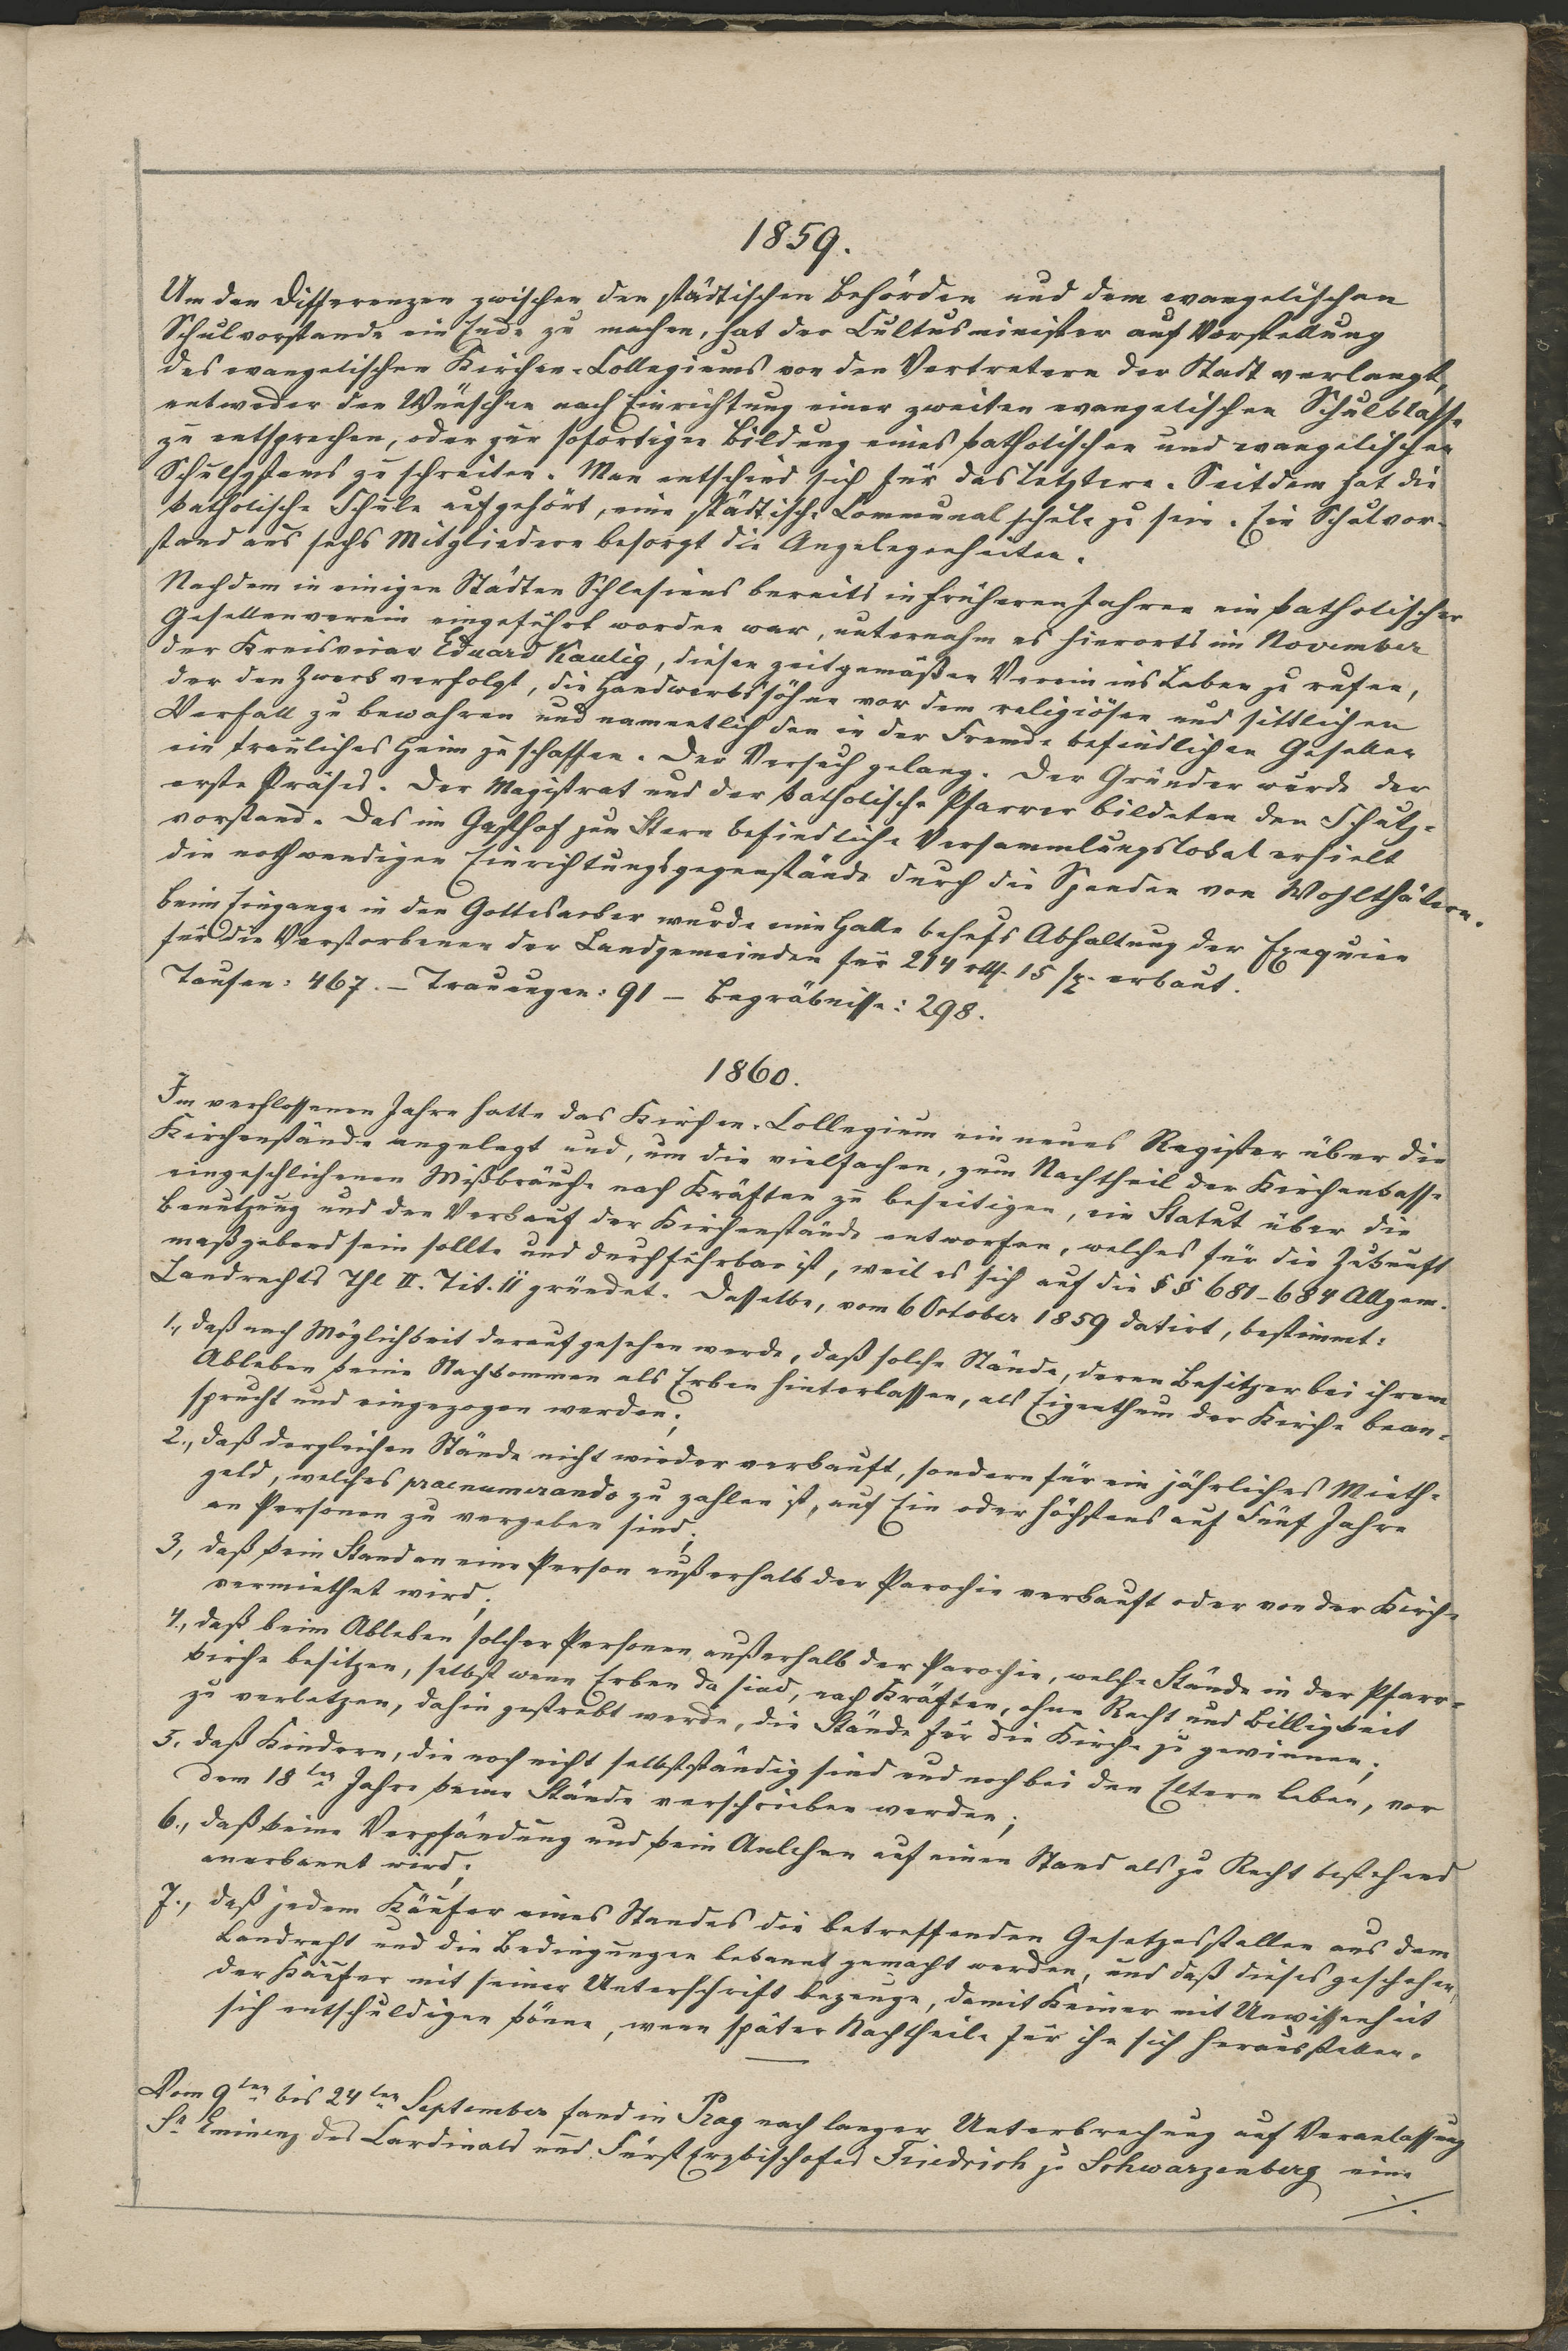 1859.
Um den Differenzen zwischen den städtischen Behörden und dem evangelischen
Schulvorstande ein Ende zu machen, hat der Cultusminister auf Vorstellung
des evangelischen Kirchen-Collegiums von den Vertretern der Stadt verlangt,
entweder den Wünschen nach Einrichtung einer zweiten evangelischen Schulklasse
zu entsprechen, oder zur sofortigen Bildung eines katholischen und evangelischen
Schulsystems zu schreiten. Man entschied sich für das Letztere. Seitdem hat die
katholische Schule aufgehört, eine städtische Communalschule zu sein. Ein Schulvor-
stand aus sechs Mitgliedern besorgt die Angelegenheiten.
Nachdem in einigen Städten Schlesiens bereits in früheren Jahren ein katholischer
Gesellenverein eingeführt worden war, unternahm es hierorts im November
der Kreisvicar Eduard Kaulig, diesen zeitgemäßen Verein ins Leben zu rufen,
der den Zweck verfolgt, die Handwerkssöhne vor dem religiösen und sittlichen
Verfall zu bewahren und namentlich den in der Fremde befindlichen Gesellen
ein trauliches Heim zu schaffen. Der Versuch gelang. Der Gründer wurde der
erste Präses. Der Magistrat und der katholische Pfarrer bildeten den Schutz-
vorstand. Das im Gasthof zum Stern befindliche Versammlungslokal erhielt
die nothwendigen Einrichtungsgegenstände durch die Spenden von Wohlthätern.
Beim Eingange in den Gottesacker wurde eine Halle behufs Abhaltung der Exequien
für die Verstorbenen der Landgemeinden für 214 rtl. 15 sg. erbaut.
Taufen: 467. – Trauungen: 91 – Begräbnisse: 298.
1860.
Im verflossenen Jahre hatte das Kirchen-Collegium ein neues Register über die
Kirchenstände angelegt und, um die vielfachen, zum Nachtheil der Kirchenkasse
eingeschlichenen Mißbräuche nach Kräften zu beseitigen, ein Statut über die
Benutzung und den Verkauf der Kirchenstände entworfen, welches für die Zukunft
maßgebend sein sollte und durchführbar ist, weil es sich auf die §§ 681–684 Allgem.
Landrechts Thl II. Tit. 11 gründet. Dasselbe, vom 6 October 1859 datirt, bestimmt:
1., daß nach Möglichkeit darauf gesehen werde, daß solche Stände, deren Besitzer bei ihrem
Ableben keine Nachkommen als Erben hinterlassen, als Eigenthum der Kirche bean-
sprucht und eingezogen werden;
2., daß dergleichen Stände nicht wieder verkauft, sondern für ein jährliches Mieth-
geld, welches praenumerando zu zahlen ist, auf Ein oder höchstens auf Fünf Jahre
an Personen zu vergeben sind;
3, daß kein Stand an eine Person außerhalb der Parochie verkauft oder von der Kirche
vermiethet wird;
4., daß beim Ableben solcher Personen außerhalb der Parochie, welche Stände in der Pfarr-
kirche besitzen, selbst wenn Erben da sind, nach Kräften, ohne Recht und Billigkeit
zu verletzen, dahin gestrebt werde, die Stände für die Kirche zu gewinnen;
5. daß Kindern, die noch nicht selbstständig sind und noch bei den Eltern leben, vor
dem 18ten Jahre keine Stände verschrieben werden;
6., daß keine Verpfändung und kein Anlehen auf einen Stand als zu Recht bestehend
anerkannt wird;
7., daß jedem Käufer eines Standes die betreffenden Gesetzesstellen aus dem
Landrecht und die Bedingungen bekannt gemacht werden, und daß dieses geschehen,
der Käufer mit seiner Unterschrift bezeuge, damit Keiner mit Unwissenheit
sich entschuldigen könne, wenn später Nachtheile für ihn sich herausstellen.
Vom 9ten bis 24ten September fand in Prag nach langer Unterbrechung auf Veranlassung
Sr Eminenz des Cardinals und Fürst Erzbischofes Friedrich zu Schwarzenberg eine
./.